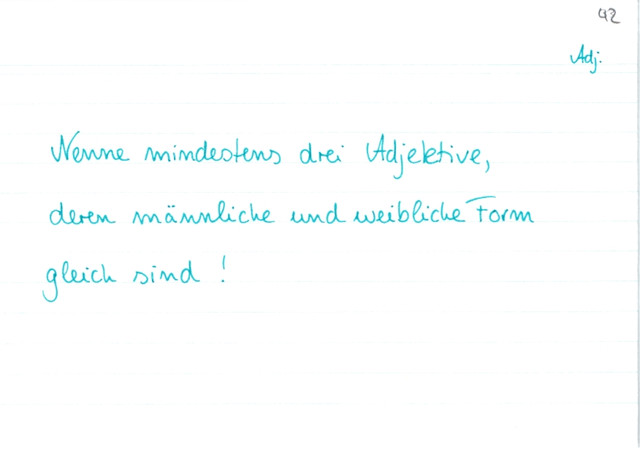 42
Adj.
Nenne mindestens drei Adjektive,
deren männliche und weibliche Form
gleich sind !